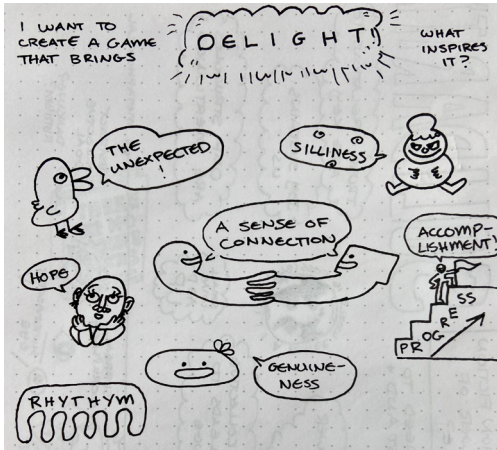 I WANT TO
CREATE A GAME
THAT BRINGS
DELIGHT!
WHAT
INSPIRES
IT?
THE
UNEXPECTED
!
SILLINESS
A SENSE OF
CONNECTION
ACCOMP-
LISHMENT!
HOPE
PROGRESS
GENUINE-
NESS
RHYTHYM